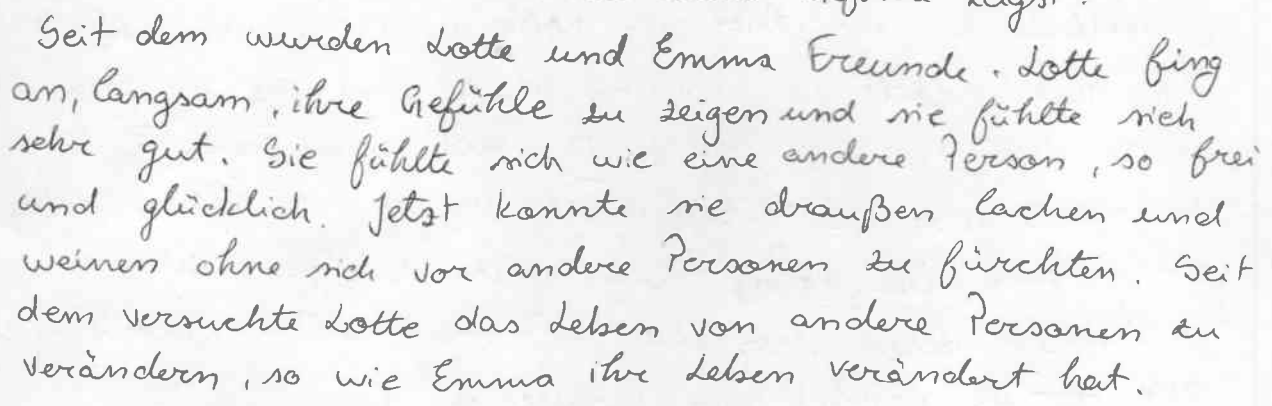 Seit dem wurden Lotte und Emma Freunde. Lotte fing
an, langsam, ihre Gefühle zu zeigen und sie fühlte sich
sehr gut. Sie fühlte sich wie eine andere Person, so frei
und glücklich. Jetzt konnte sie draußen lachen und
weinen ohne sich vor andere Personen zu fürchten. Seit
dem versuchte Lotte das Leben von andere Personen zu
verändern, so wie Emma ihr Leben verändert hat.